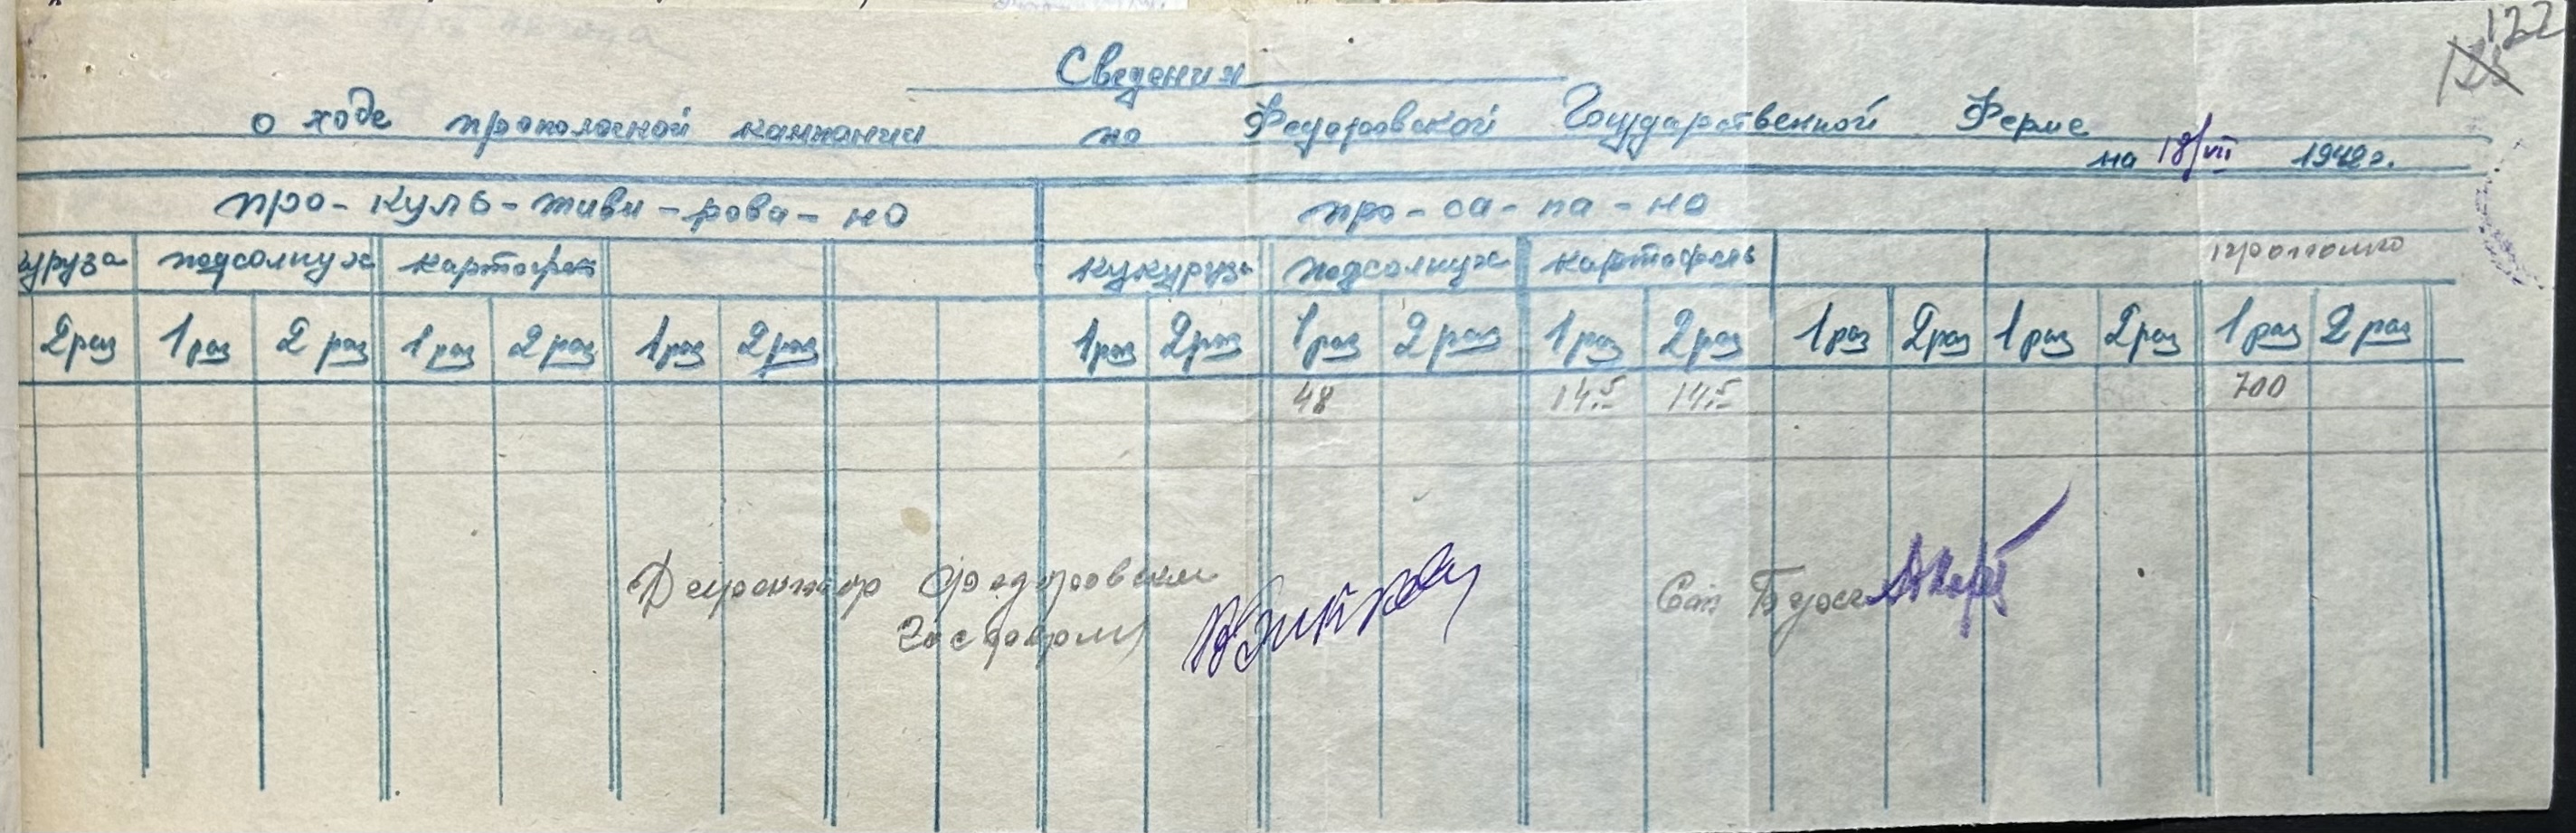 122
Сведения
о ходе прополочной кампании по Федоровской Государственной Ферме
на 18/VII 1942 г.
про-куль-тиви-рова-но про-са-па-но
уруза подсолнух картофель кукуруза подсолнух картофель
2 раз 1 раз 2 раз 1 раз 2 раз 1 раз 2 раз 1 раз 2 раз 1 раз 2 раз 1 раз 2 раз 1 раз 2 раз 1 раз 2 раз 1 раз 2 раз
48 14.5 14.5 700
Директор Федоровской
Госфермы